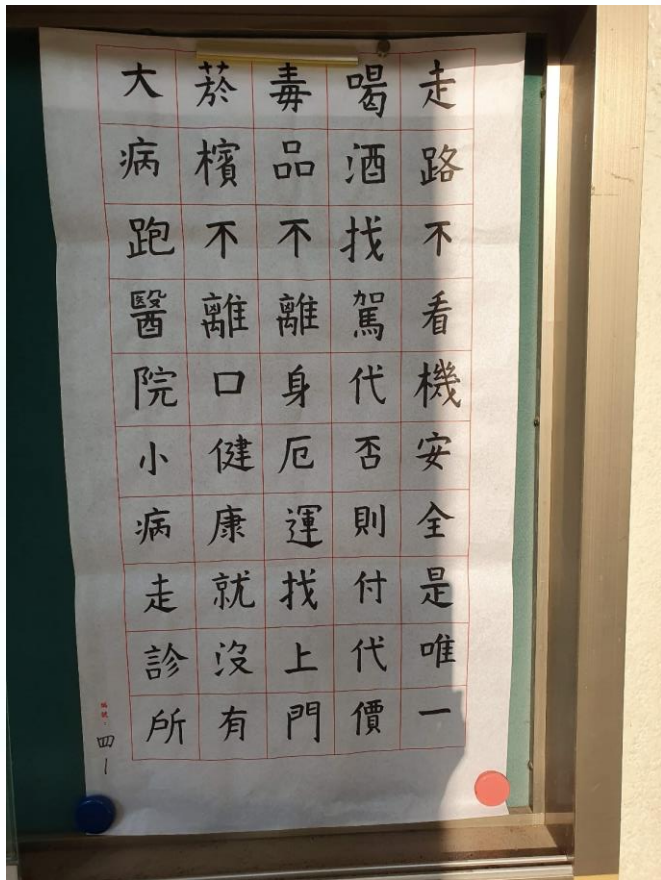 走路不看機安全是唯一
喝酒找駕代否則付代價
毒品不離身厄運找上門
菸檳不離口健康就沒有
大病跑醫院小病走診所
編號：
四1